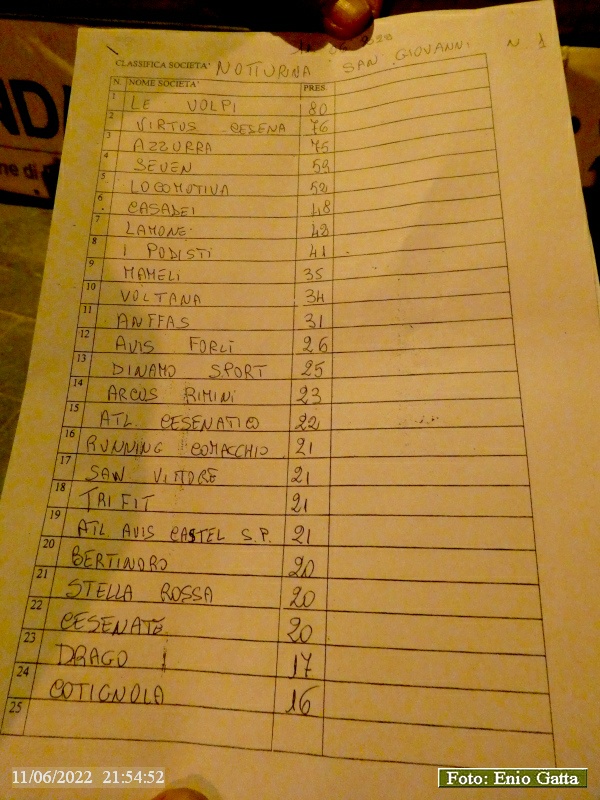 2022
N. 1
CLASSIFICA SOCIETA' NOTTURNA SAN GIOVANNI
N. NOME SOCIETA' PRES.
1 LE VOLPI 80
2 VIRTUS CESENA 76
3 AZZURRA 75
4 SEVEN 59
5 LOCOMOTIVA 52
6 CASADEI 48
7 LAMONE 42
8 I PODISTI 41
9 MAMELI 35
10 VOLTANA 34
11 ANFFAS 31
12 AVIS FORLÌ 26
13 DINAMO SPORT 25
14 ARCUS RIMINI 23
15 ATL. CESENATICO 22
16 RUNNING COMACCHIO 21
17 SAN VITTORE 21
18 TRI FIT 21
19 ATL AVIS CASTEL S.P. 21
20 BERTINORO 20
21 STELLA ROSSA 20
22 CESENATE 20
23 DRAGO 17
24 COTIGNOLA 16
25
11/06/2022 21:54:52
Foto: Enio Gatta